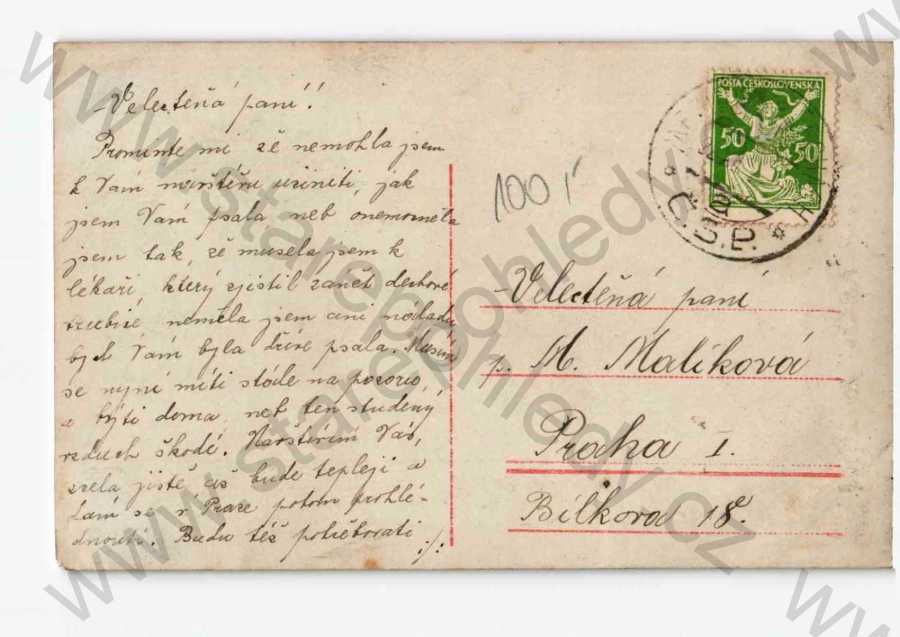 Velectěná paní!
Prominte mi zě nemohla jsem
k Vám návštěvu učiniti, jak
jsem Vám psala neb onemocněla
jsem tak, zě musela jsem k
lékaři, který zjistil zánět dechové
trubice, neměla jsem ani náladu
bych Vám byla dříve psala. Musím
se nyní míti stále na pozoru
a býti doma, neb ten studený
vzduch škodí. Navštívím Vás,
zcela jistě až bude tepleji a
dám se v Praze potom prohlé-
dnouti. Budu též potřebovati ./.
100,-
POŠTA ČESKOSLOVENSKÁ
50 50
Č.S.P.
Velectěná paní
p. M. Malíková
Praha I.
Bílkova 18.
www.starepohledy.cz